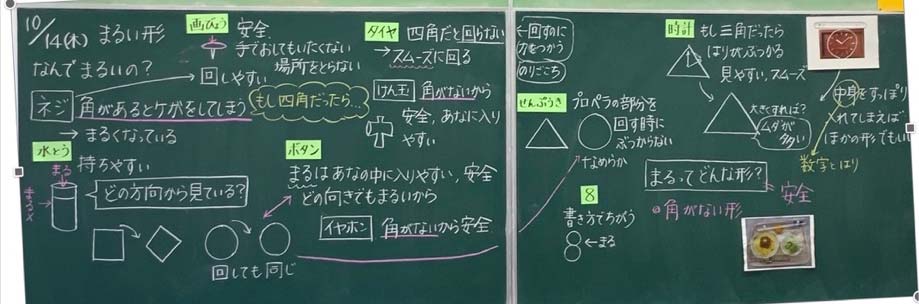 10/14(木) まるい形
なんでまるいの?
ネジ 角があるとケガをしてしまう
→ まるくなっている
水とう 持ちやすい
まる
まる×
どの方向から見ている?
画びょう 安全
手でおしてもいたくない
場所をとらない
回しやすい
もし四角だったら…
ボタン
まるはあなの中に入りやすい、安全
どの向きでもまるいから
イヤホン 角がないから安全
回しても同じ
タイヤ 四角だと回らない
→スムーズに回る
けん玉 角がないから
安全、あなに入り
やすい
←回すのに
力をつかう
のりごこち
せんぷうき プロペラの部分を
回す時に
ぶつからない
なめらか
8
書き方でちがう
←まる
時計 もし三角だったら
はりがぶつかる
見やすい、スムーズ
大きくすれば?
ムダが
多い
中身をすっぽり
入れてしまえば
ほかの形でもいい
数字とはり
まるってどんな形?
安全
角がない形